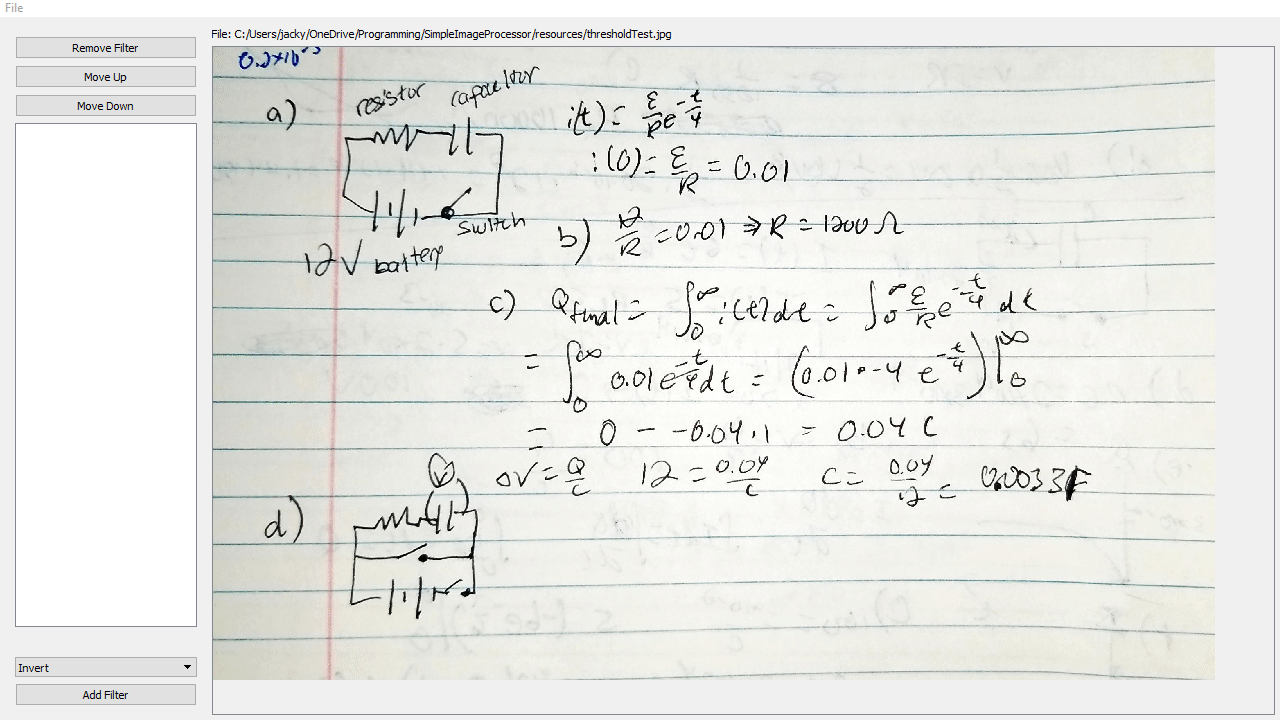 File
Remove Filter
Move Up
Move Down
Invert
Add Filter
File: C:/Users/jacky/OneDrive/Programming/SimpleImageProcessor/resources/thresholdTest.jpg
0.2×10⁻³
a)
resistor capacitor
switch
12V battery
i(t) = ℰ/R e^(-t/4)
i(0) = ℰ/R = 0.01
b) 12/R = 0.01 ⇒ R = 1200 Ω
c) Q_final = ∫₀^∞ i(t) dt = ∫₀^∞ ℰ/R e^(-t/4) dt
= ∫₀^∞ 0.01 e^(-t/4) dt = (0.01 · -4 e^(-t/4)) |₀^∞
= 0 - -0.04 · 1 = 0.04 C
ΔV = Q/C 12 = 0.04/C C = 0.04/12 = 0.0033F
d)
V